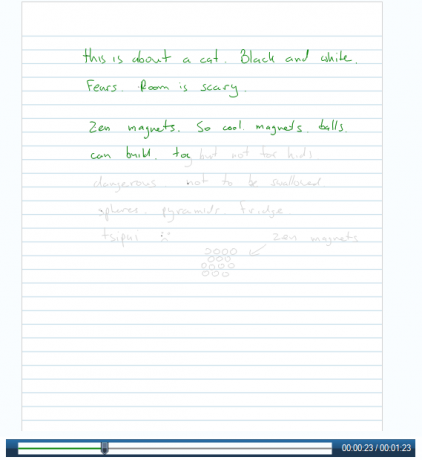 this is about a cat. Black and white.
Fears. Room is scary.
Zen magnets. So cool. magnets. balls.
can build. toy but not for kids
dangerous not to be swallowed
spheres. pyramids. fridge
zen magnets
00:00:23 / 00:01:23